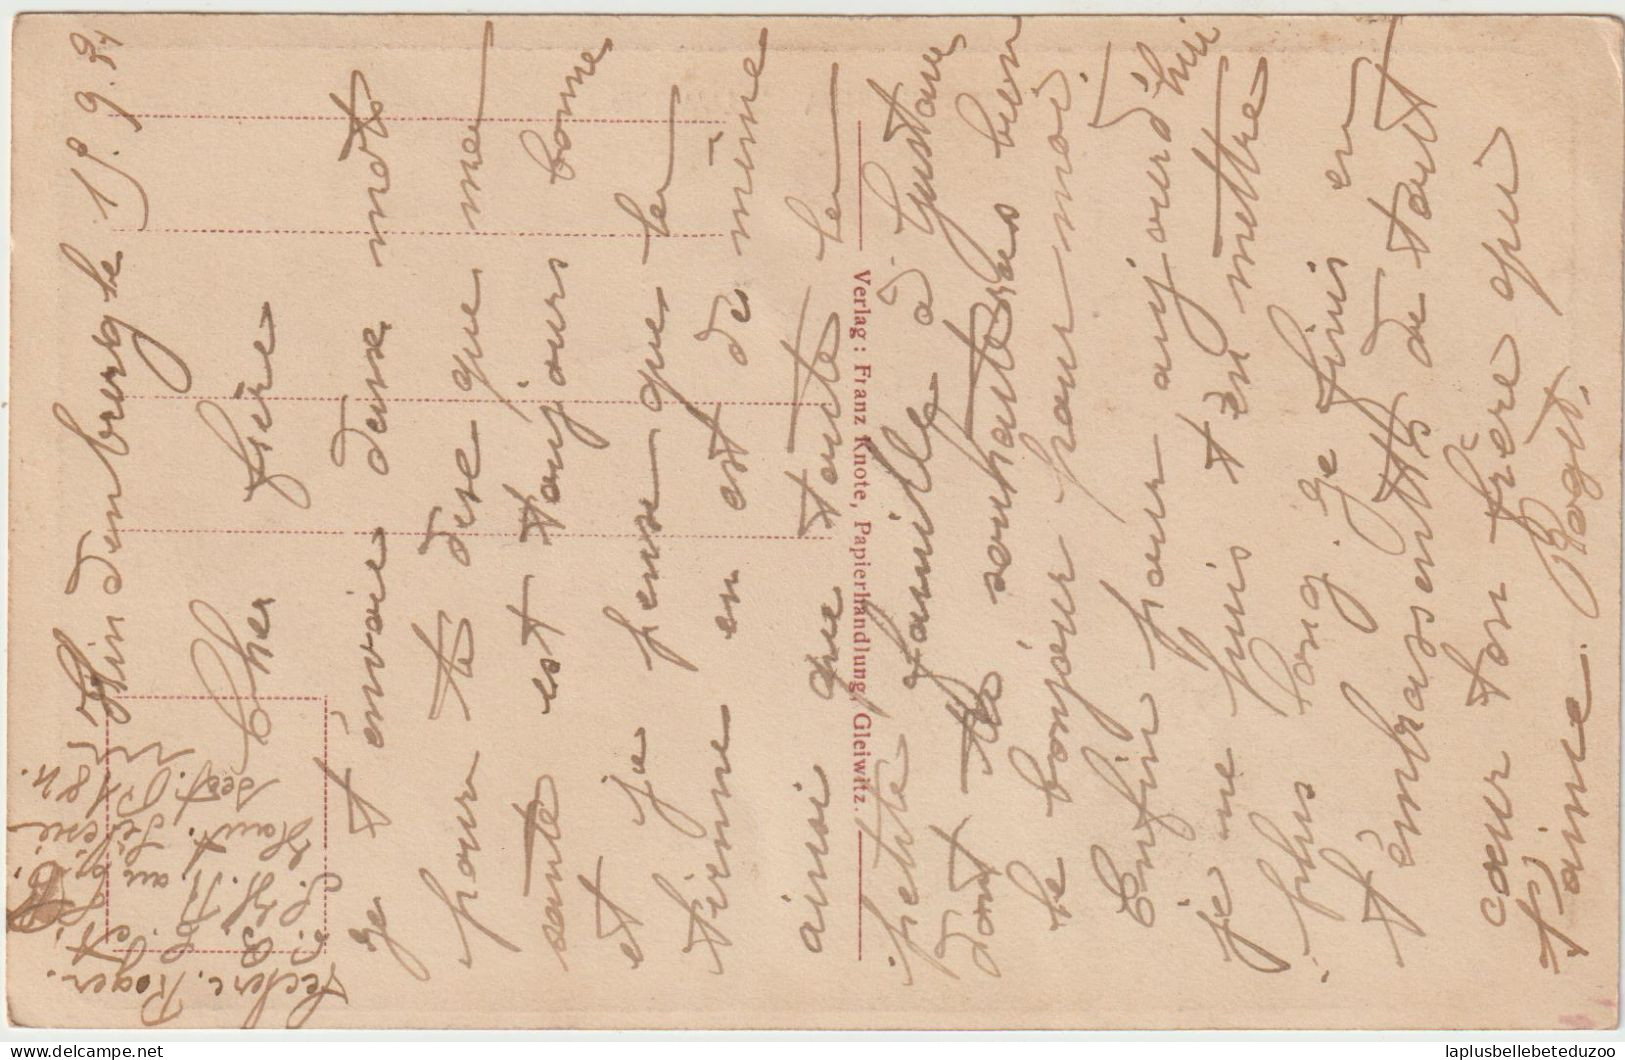 Hindenburg le 15.9.24
Cher frère
je t'envoie deux mots
pour te dire que ma
santé est toujours bonne
et je pense que la
tienne en est de même
ainsi que toute la
petite famille à Gustave
dont tu souhaiteras bien
le bonjour pour moi
Enfin pour aujourd'hui
je ne puis t'en mettre
plus long. je finis en
t'embrassant de tout
cœur ton frère qui
t'aime. Roger
Leclerc Roger.
Haute Silésie
Sect. P. 184.
Verlag: Franz Knote, Papierhandlung, Gleiwitz.
laplusbellebeteduzoo